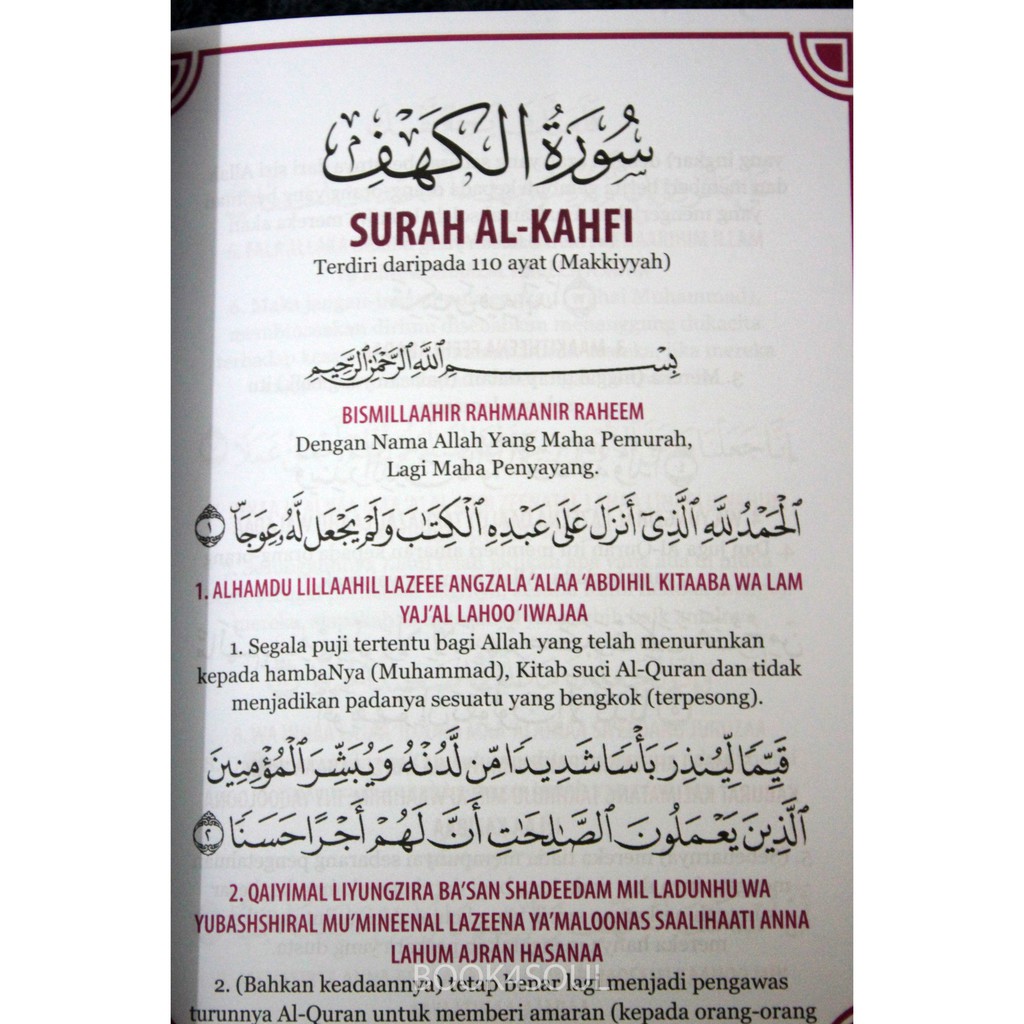 سُورَةُ الكَهْفِ
SURAH AL-KAHFI
Terdiri daripada 110 ayat (Makkiyyah)
بِسْمِ ٱللَّهِ ٱلرَّحْمَٰنِ ٱلرَّحِيمِ
BISMILLAAHIR RAHMAANIR RAHEEM
Dengan Nama Allah Yang Maha Pemurah,
Lagi Maha Penyayang.
ٱلْحَمْدُ لِلَّهِ ٱلَّذِىٓ أَنزَلَ عَلَىٰ عَبْدِهِ ٱلْكِتَٰبَ وَلَمْ يَجْعَل لَّهُۥ عِوَجَاۜ ١
1. ALHAMDU LILLAAHIL LAZEEE ANGZALA ‘ALAA ‘ABDIHIL KITAABA WA LAM
YAJ’AL LAHOO ‘IWAJAA
1. Segala puji tertentu bagi Allah yang telah menurunkan
kepada hambaNya (Muhammad), Kitab suci Al-Quran dan tidak
menjadikan padanya sesuatu yang bengkok (terpesong).
قَيِّمًا لِّيُنذِرَ بَأْسًا شَدِيدًا مِّن لَّدُنْهُ وَيُبَشِّرَ ٱلْمُؤْمِنِينَ
ٱلَّذِينَ يَعْمَلُونَ ٱلصَّٰلِحَٰتِ أَنَّ لَهُمْ أَجْرًا حَسَنًا ٢
2. QAIYIMAL LIYUNGZIRA BA’SAN SHADEEDAM MIL LADUNHU WA
YUBASHSHIRAL MU’MINEENAL LAZEENA YA’MALOONAS SAALIHAATI ANNA
LAHUM AJRAN HASANAA
2. (Bahkan keadaannya) tetap benar lagi menjadi pengawas
turunnya Al-Quran untuk memberi amaran (kepada orang-orang
BOOK4SOUL